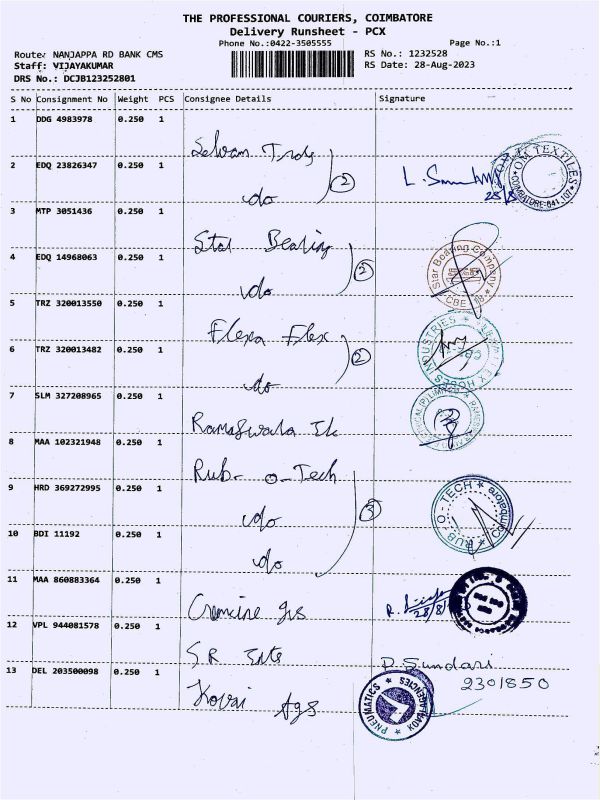 THE PROFESSIONAL COURIERS, COIMBATORE
Delivery Runsheet - PCX
Phone No.:0422-3505555
Page No.:1
Route: NANJAPPA RD BANK CMS
RS No.: 1232528
Staff: VIJAYAKUMAR
RS Date: 28-Aug-2023
DRS No.: DCJB123252801
S No Consignment No Weight PCS Consignee Details Signature
1 DDG 4983978 0.250 1
Selvam Trdg
2 EDQ 23826347 0.250 1
do 2
OM TEXTILES
COIMBATORE-641 107
28/8
3 MTP 3051436 0.250 1
Star Bearing
4 EDQ 14968063 0.250 1
do 2
Star Bearing Company
CBE
5 TRZ 320013550 0.250 1
Flexa Flex
6 TRZ 320013482 0.250 1
do 2
HOSES INDUSTRIES
7 SLM 327208965 0.250 1
8 MAA 102321948 0.250 1
Rub-o-Tech
9 HRD 369272995 0.250 1
do 3
RUB-O-TECH
Coimbatore
10 BDI 11192 0.250 1
do
11 MAA 860883364 0.250 1
28/8
12 VPL 944081578 0.250 1
S R
P. Sundari
13 DEL 203500098 0.250 1
2301850
Kovai Ags
KOVAI AGENCIES
PNEUMATICS